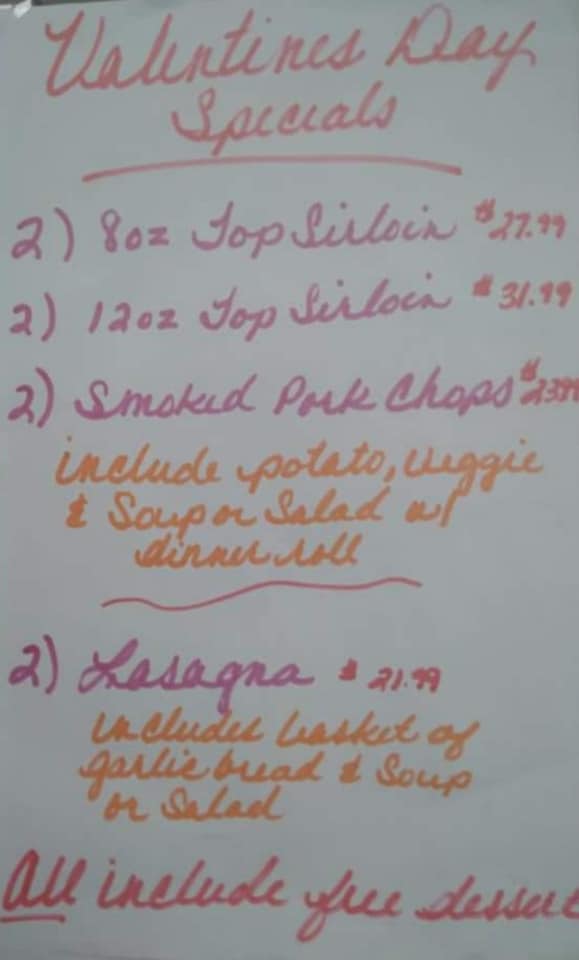 Valentines Day
Specials
2) 8oz Top Sirloin $27.99
2) 12oz Top Sirloin $31.99
2) Smoked Pork Chops $23.99
include potato, Veggie
& Soup or Salad w/
dinner roll
2) Lasagna $21.99
includes basket of
garlic bread & Soup
or Salad
All include free dessert